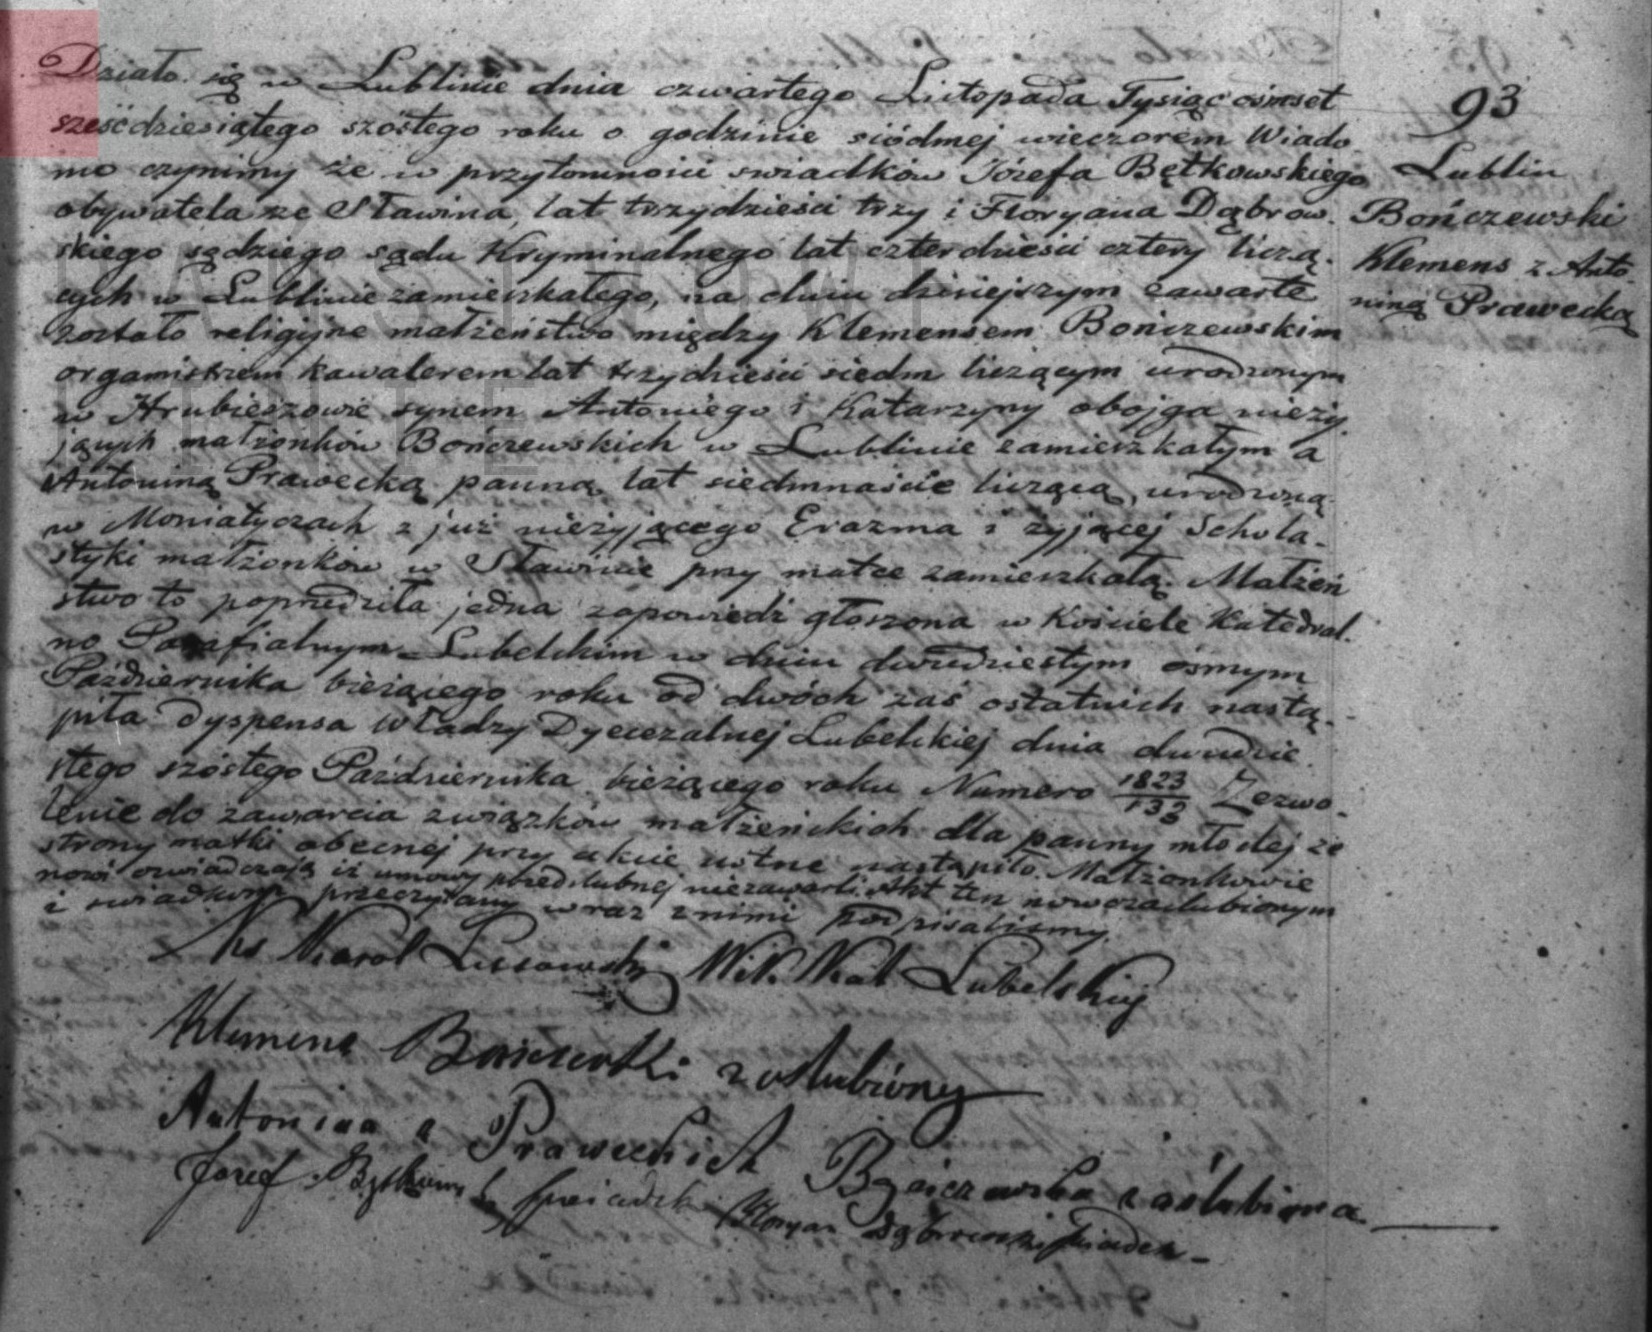 Działo się w Lublinie dnia czwartego Listopada Tysiąc ośmset
sześćdziesiątego szóstego roku o godzinie siódmej wieczorem Wiado
mo czynimy że w przytomności swiadków Józefa Bętkowskiego
obywatela ze Sławina, lat trzydzieści trzy i Floryana Dąbrow.
skiego sędziego sądu Kryminalnego lat czterdzieści cztery liczą.
cych w Lublinie zamieszkałego, na dniu dzisiejszym zawarte
zostało religijne małżeństwo między Klemensem Bończewskim
organistrzem kawalerem lat trzydzieści siedm liczącym urodzonym
w Hrubieszowie synem Antoniego i Katarzyny obojga nieży.
jących małżonków Bończewskich w Lublinie zamieszkałym a
Antoniną Prawecką panną lat siedmnaście liczącą, urodzoną
w Moniatyczach z już nieżyjącego Erazma i żyjącej Schola-
styki małżonków w Sławinie przy matce zamieszkałą. Małżeń
stwo to poprzedziła jedna zapowiedź głoszona w Kościele Katedral.
no Parafialnym Lubelskim w dniu dwudziestym ósmym
Października bieżącego roku od dwóch zaś ostatnich nastą.
piła dyspensa Władzy Dyecezalnej Lubelskiej dnia dwudzie
stego szóstego Października bieżącego roku Numero 1823/133 Zezwo-
lenie do zawarcia związków małżeńskich dla panny młodej ze
strony matki obecnej przy akcie ustne nastąpiło. Małżonkowie
nowi oswiadczają iż umowy przedślubnej niezawarli. Akt ten nowozaślubionym
i swiadkom przeczytany wraz z nimi podpisaliśmy.
Ks Karol Lissowski Wik. Kat Lubelskiej
Klemens Bończewski zaślubiony
Antonina z Praweckich Bończewska zaślubiona
Józef Bętkowski swiadek Floryan Dąbrowski swiadek
93
Lublin
Bończewski
Klemens z Anto.
niną Prawecką